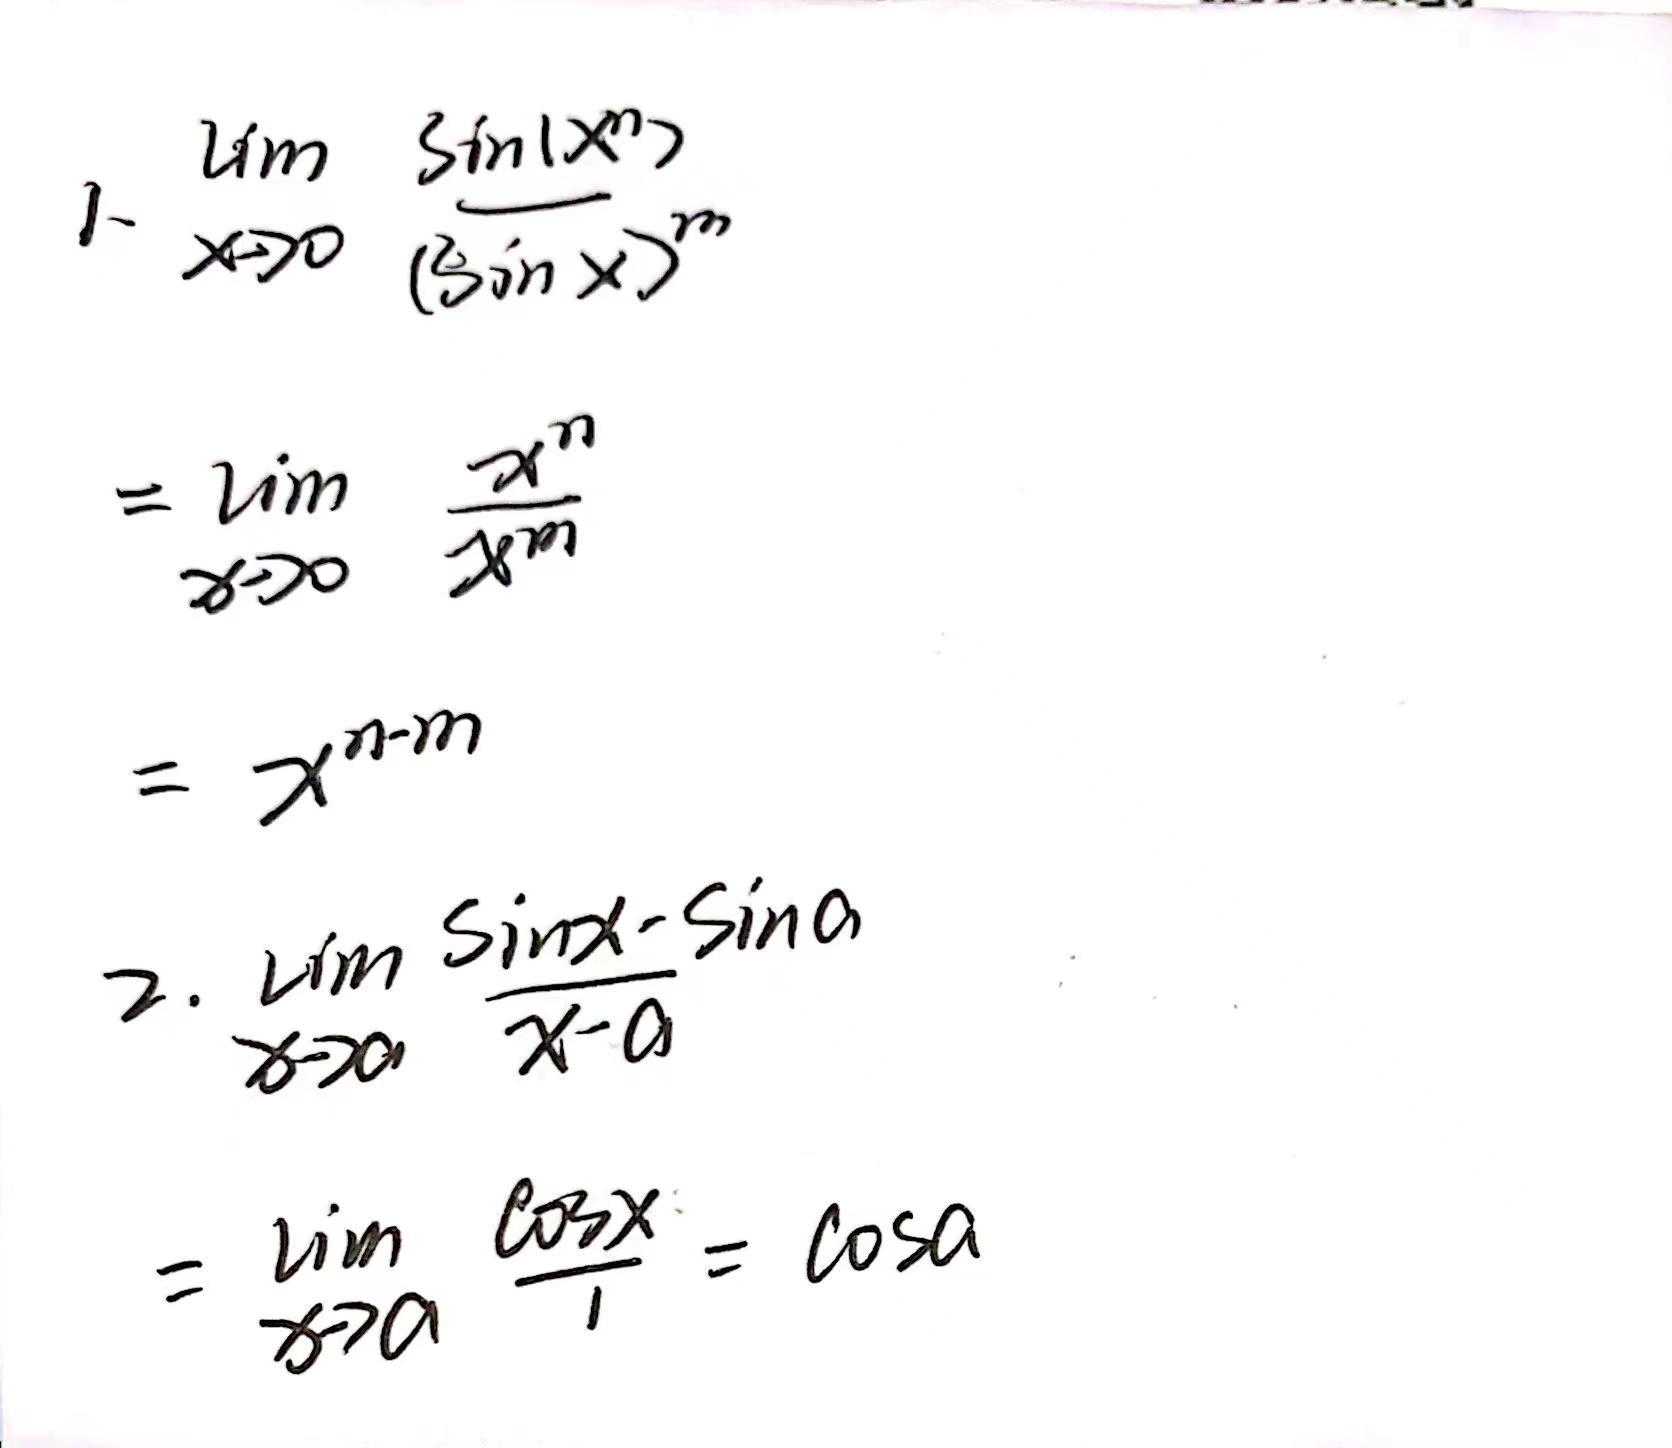 1. lim x→0 sin(xⁿ) / (sin x)ᵐ
= lim x→0 xⁿ / xᵐ
= xⁿ⁻ᵐ
2. lim x→a sinx - sina / x-a
= lim x→a cosx / 1 = cosa